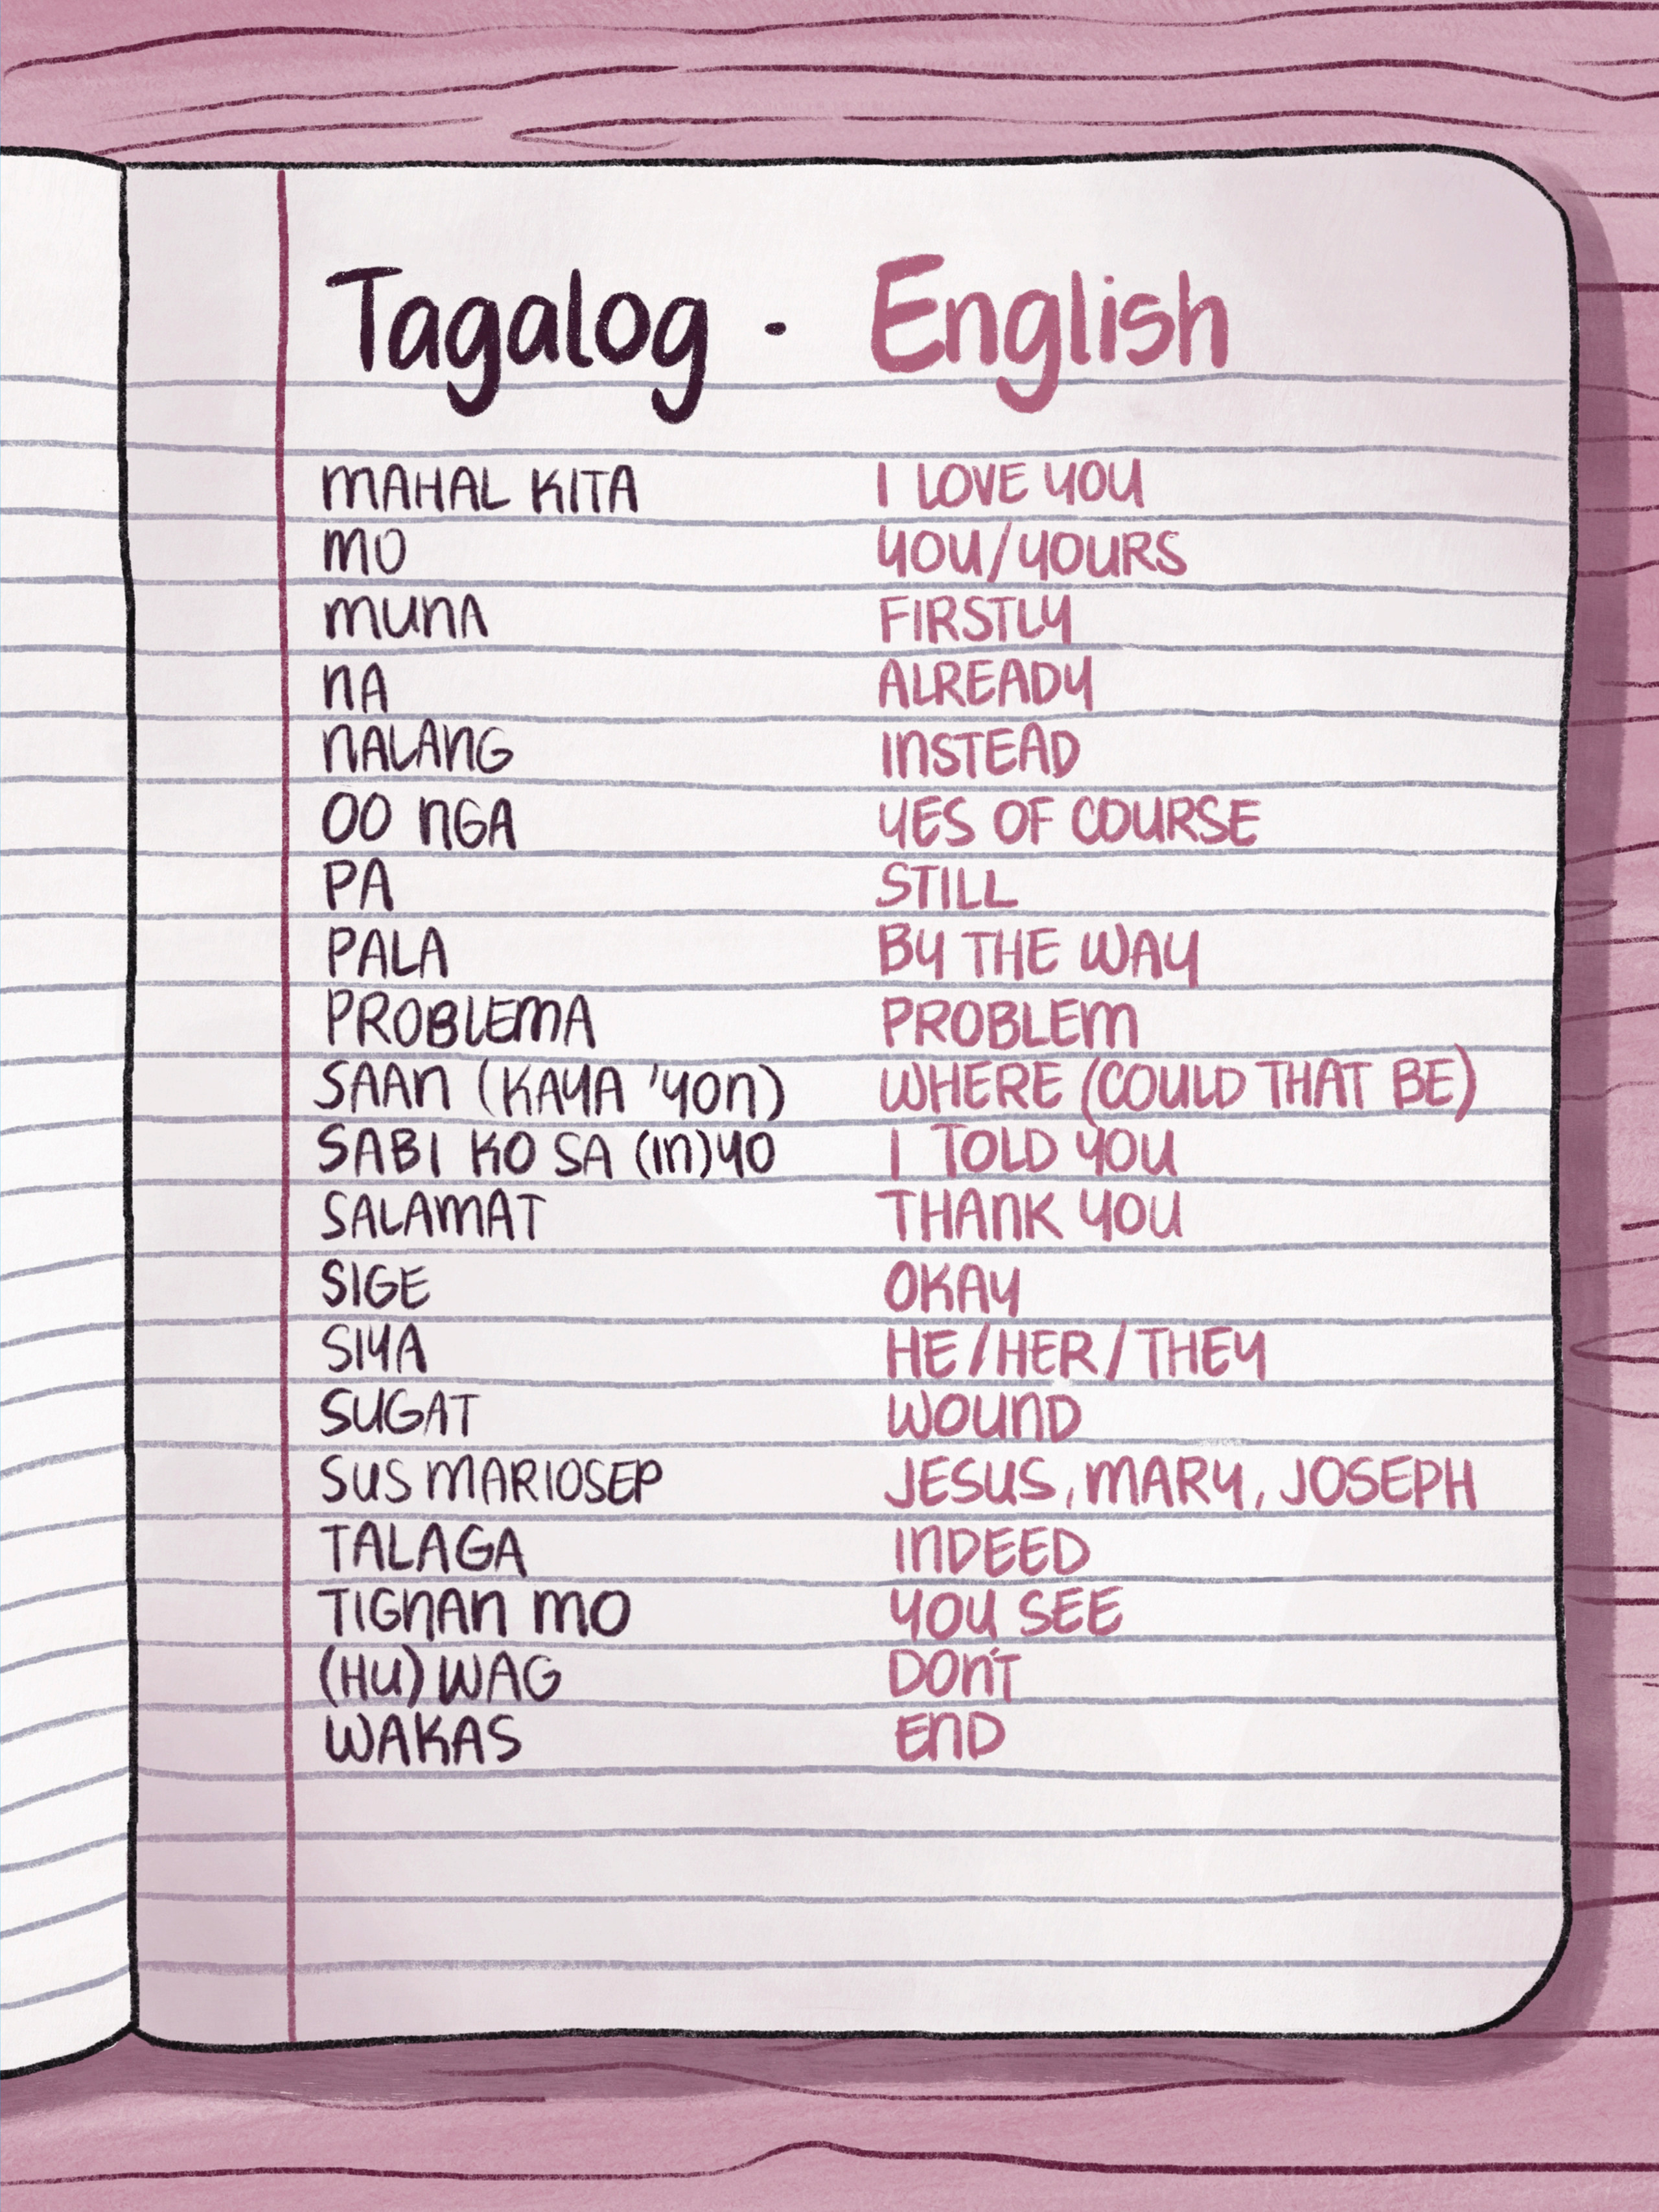 Tagalog - English
MAHAL KITA I LOVE YOU
MO YOU/YOURS
MUNA FIRSTLY
NA ALREADY
NALANG INSTEAD
OO NGA YES OF COURSE
PA STILL
PALA BY THE WAY
PROBLEMA PROBLEM
SAAN (KAYA 'YON) WHERE (COULD THAT BE)
SABI KO SA (IN)YO I TOLD YOU
SALAMAT THANK YOU
SIGE OKAY
SIYA HE/HER/THEY
SUGAT WOUND
SUS MARIOSEP JESUS, MARY, JOSEPH
TALAGA INDEED
TIGNAN MO YOU SEE
(HU)WAG DON'T
WAKAS END